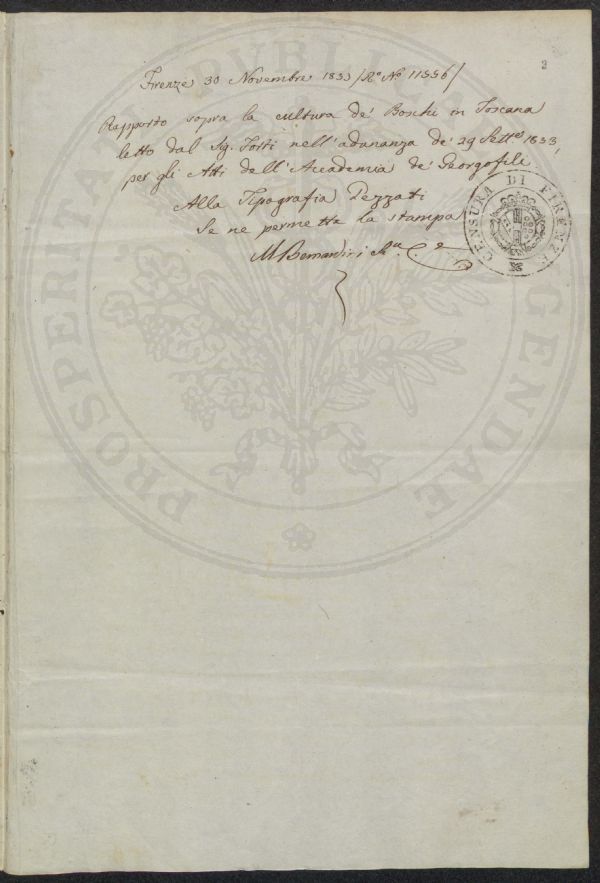 3
Firenze 30 Novembre 1833 / Ro No 11556 /
Rapporto sopra la cultura de' Boschi in Toscana
letto dal Sig. Torti nell'adunanza de' 29 Sette 1833,
per gli Atti dell'Accademia de' Georgofili.
Alla Tipografia Pezzati
Se ne permette la stampa
M Bernardini
CENSURA DI FIRENZE
PROSPERITATI PVBLICAE AVGENDAE